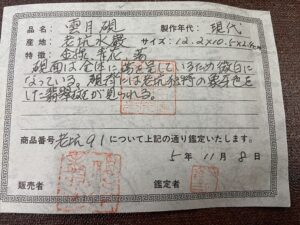 品名: 雲月硯 製作年代: 現代
産地: 老坑水巌 サイズ: 12.2×10.5×2.
特徴:
硯面は全体に をしているため 白に
なっている。硯背には老坑独特の 色を
した翡翠斑が見られる。
商品番号 老坑91について上記の通り鑑定いたします。
5年 11月 8日
販売者 鑑定者